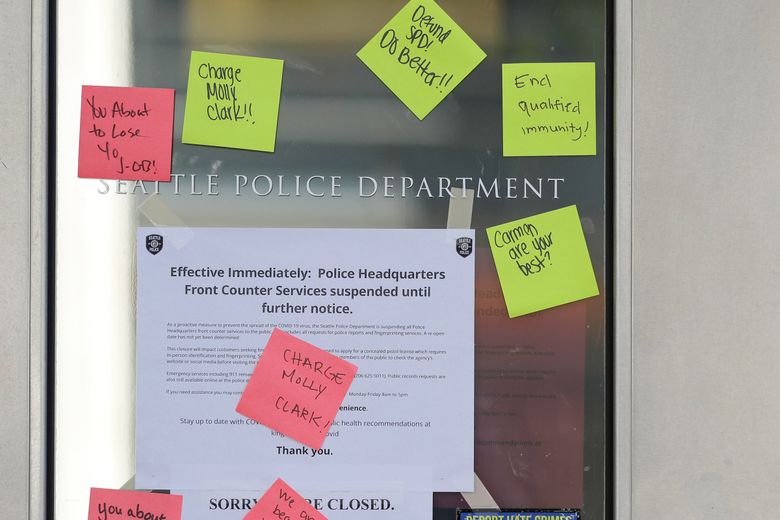 Defund
SPD!
Do Better!!
Charge
Molly
Clark!!
End
qualified
immunity!
You About
to Lose
Yo
J-OB!
SEATTLE POLICE DEPARTMENT
Carmon
are your
best?
SEATTLE
POLICE
SEATTLE
POLICE
Effective Immediately: Police Headquarters
Front Counter Services suspended until
further notice.
As a proactive measure to prevent the spread of the COVID-19 virus, the Seattle Police Department is suspending all Police
Headquarters front counter services to the public includes all requests for police reports and fingerprinting services. A re-open
date has not yet been determined
This closure will impact customers seeking to applied for a concealed pistol license which requires
in-person identification and fingerprinting. members of the public to check the agency's
website or social media before visiting the
Emergency services including 911 remain (206-625-5011). Public records requests are
also still available online at the police
If you need assistance you may Monday-Friday 8am to 5pm
CHARGE
MOLLY
CLARK!
Stay up to date with public health recommendations at
Thank you.
SORRY WE'RE CLOSED.
you about
We a
REPORT HATE CRIMES